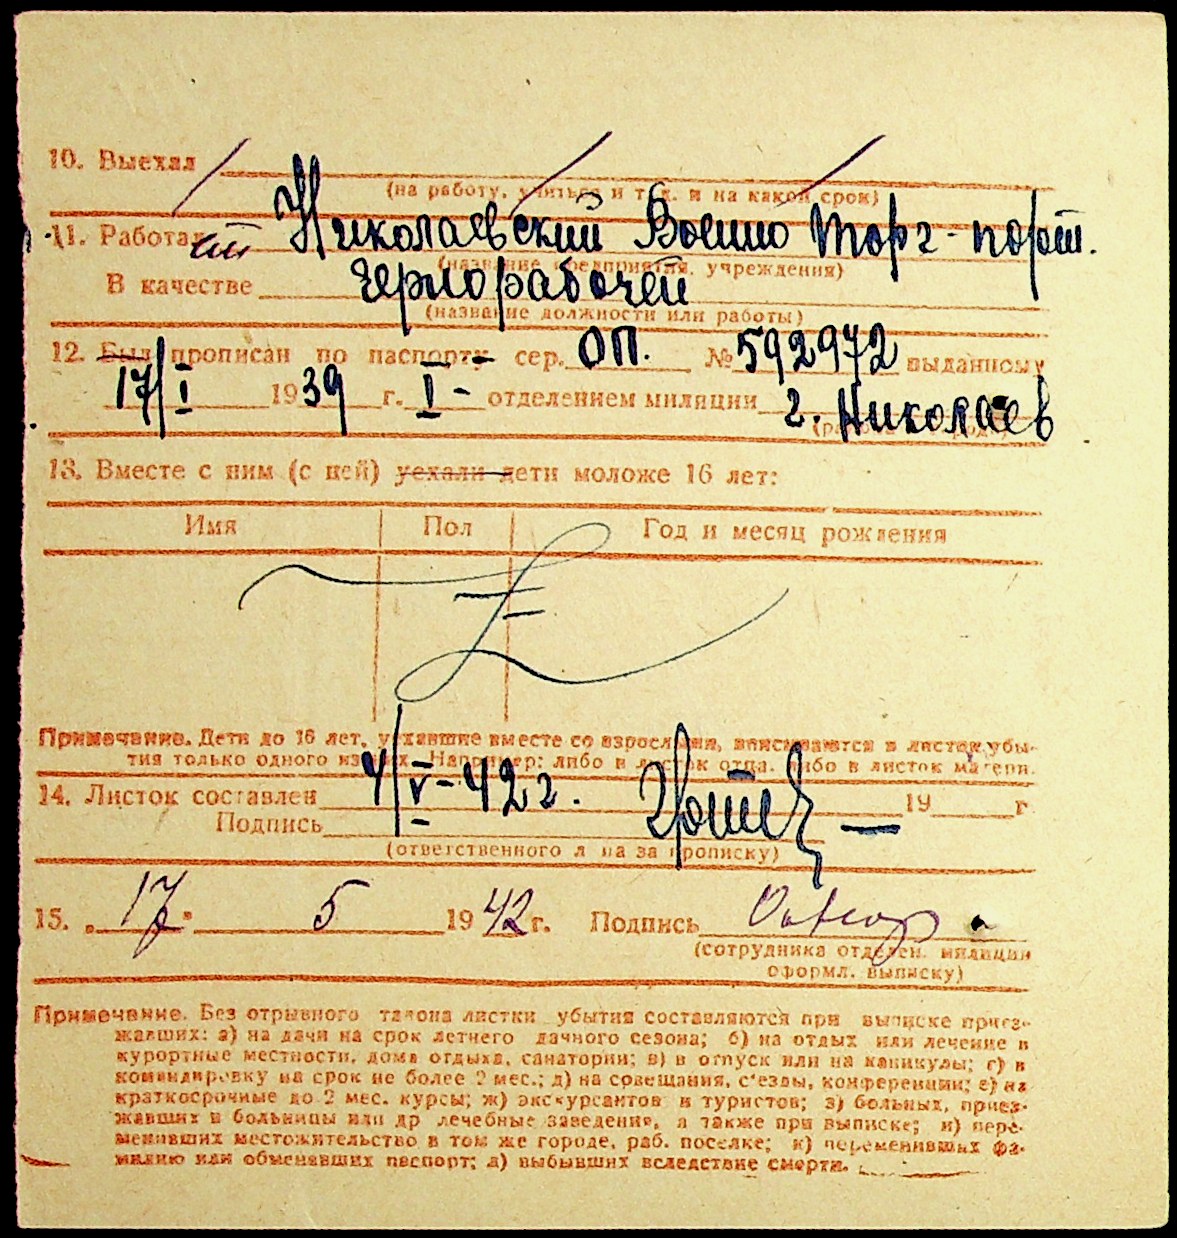 10. Выехал
(на работу, учиться и т. д. и на какой срок)
11. Работал Николаевский Военно Торг-порт.
(название предприятия, учреждения)
В качестве чернорабочей
(название должности или работы)
12. Был прописан по паспорту сер. ОП. № 592972 выданному
17/I 1939 г. I- отделением милиции г. Николаев
13. Вместе с ним (с ней) уехали дети моложе 16 лет:
Имя Пол Год и месяц рождения
Примечание. Дети до 16 лет, уехавшие вместе со взрослыми, вписываются в листок убы-
тия только одного из них. Например: либо в листок отца, либо в листок матери.
14. Листок составлен 4/V-42 г. 19 г.
Подпись
(ответственного л на за прописку)
15. „17" 5 1942 г. Подпись
(сотрудника отделен. милиции
оформл. выписку)
Примечание. Без отрывного талона листки убытия составляются при выписке приез-
жавших: а) на дачи на срок летнего дачного сезона; б) на отдых или лечение в
курортные местности, дома отдыха, санатории; в) в отпуск или на каникулы; г) в
командировку на срок не более 2 мес.; д) на совещания, с'езды, конференции; е) на
краткосрочные до 2 мес. курсы; ж) экскурсантов и туристов; з) больных, приез-
жавших в больницы или др лечебные заведения, а также при выписке; и) пере-
менивших местожительство в том же городе, раб. поселке; к) переменивших фа-
милию или обменявших паспорт; л) выбывших вследствие смерти.